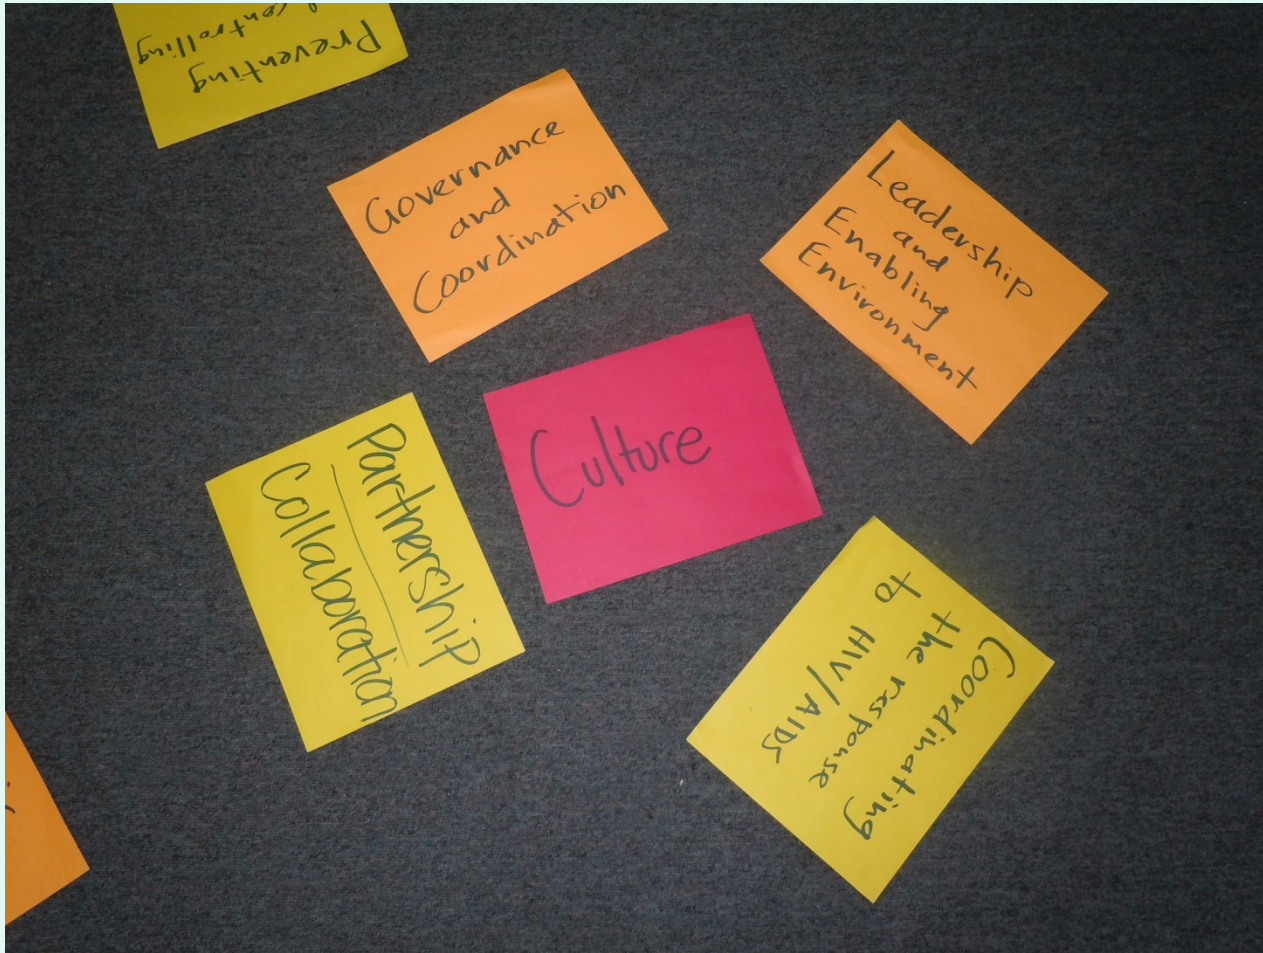 Preventing
controlling
Governance
and
Coordination
Leadership
and
Enabling
Environment
Culture
Partnership
Collaboration
Coordinating
the response
to HIV/AIDS